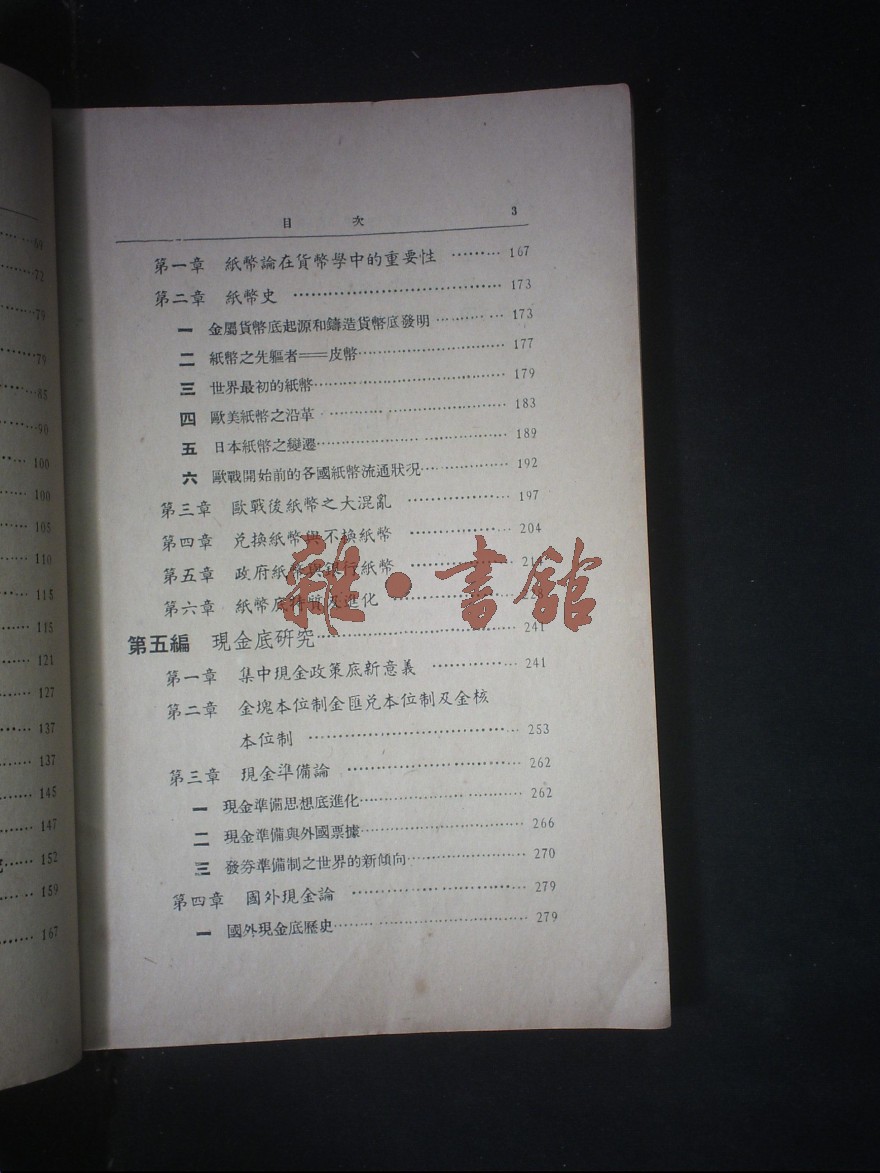 目 次 3
第一章 紙幣論在貨幣學中的重要性 ……… 167
第二章 紙幣史 ……………………………… 173
一 金屬貨幣底起源和鑄造貨幣底發明 ………… 173
二 紙幣之先驅者══皮幣…………………… 177
三 世界最初的紙幣…………………………… 179
四 歐美紙幣之沿革 ………………………… 183
五 日本紙幣之變遷………………………… 189
六 歐戰開始前的各國紙幣流通狀况………… 192
第三章 歐戰後紙幣之大混亂 ……………… 197
第四章 兌換紙幣與不換紙幣 ……………… 204
第五章 政府紙幣與銀行紙幣 ………………
第六章 紙幣底特質及進化 …………………
雜·書館
第五編 現金底研究…………………………… 241
第一章 集中現金政策底新意義 …………… 241
第二章 金塊本位制金匯兌本位制及金核
本位制 ……………………………… 253
第三章 現金準備論 ………………………… 262
一 現金準備思想底進化……………………… 262
二 現金準備與外國票據……………………… 266
三 發券準備制之世界的新傾向……………… 270
第四章 國外現金論 ………………………… 279
一 國外現金底歷史………………………… 279
69
72
79
79
85
90
100
100
105
110
115
115
121
127
137
137
145
147
152
159
167